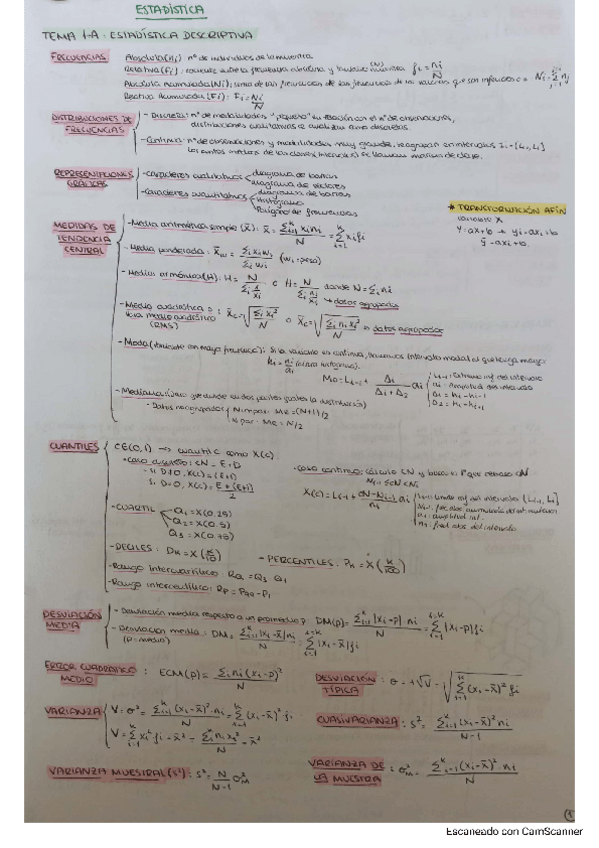 ESTADÍSTICA
TEMA 1-A: ESTADÍSTICA DESCRIPTIVA
FRECUENCIAS
Absoluta (ni): nº de individuos de la muestra
Relativa (fi): cociente entre la frecuencia absoluta y tamaño muestra (N) fi = ni/N
Absoluta Acumulada (Ni): suma de las frecuencias de los valores que son inferiores o = Ni = Σ nj
Relativa Acumulada (Fi): Fi = Ni/N
DISTRIBUCIONES DE FRECUENCIAS
- Discreta: nº de modalidades "pequeño" en relación con el nº de observaciones,
distribuciones cualitativas se analizan como discretas.
- Continua: nº de observaciones y modalidades muy grande, se agrupan en intervalos
los puntos medios de las clases (intervalos) se llaman marcas de clase.
REPRESENTACIONES GRÁFICAS
- Caracteres cualitativos
diagrama de barras
diagrama de sectores
- Caracteres cuantitativos
diagrama de barras
Histograma
Polígono de frecuencias
* TRANSFORMACIÓN AFÍN
variable X
Y = ax+b → yi = axi+b
ȳ = ax̄+b
MEDIDAS DE TENDENCIA CENTRAL
- Media aritmética simple (x̄): x̄ = Σᵢ₌₁ᵏ xi ni / N = Σᵢ₌₁ᵏ xi fi
- Media ponderada: x̄w = Σi xi wi / Σi wi (wi = peso)
- Media armónica (H): H = N / Σi 1/xi o H = N / Σi ni/xi donde N = Σi ni
↳ datos agrupados
- Media cuadrática o
(RMS)
x̄c = √(Σi xi² / N) o x̄c = √(Σi ni xi² / N) → datos agrupados
- Moda (elemento con mayor frecuencia): Si la variable es continua, buscamos intervalo modal
hi = ni/ai (altura histograma).
Mo = Li-1 + Δ1/(Δ1+Δ2) ai
Li-1: extremo inf. del intervalo
ai: amplitud del intervalo
Δ1 = hi - hi-1
Δ2 = hi - hi+1
- Mediana
- Datos no agrupados
N impar: Me = (N+1)/2
N par: Me = N/2
CUANTILES
C ∈ (0,1) → cuantil C como X(c).
· Caso discreto: CN = E+D
- si D≠0, X(c) = (E+1)
- si D=0, X(c) = E+(E+1) / 2
· Caso continuo: cálculo CN y busco
Ni-1 ≤ cN < Ni
X(c) = Li-1 + (cN-Ni-1)/ni ai
ai: amplitud int.
ni: frec abs del intervalo
- CUARTIL
Q1 = X(0.25)
Q2 = X(0.5)
Q3 = X(0.75)
- DECILES: Dk = X(k/10)
- PERCENTILES: Pk = X(k/100)
- Rango intercuartílico: RQ = Q3 - Q1
- Rango intercentílico: RP = P99 - P1
DESVIACIÓN MEDIA
- Desviación media respecto a un promedio P DM(p) = Σᵢ₌₁ᵏ |xi-p| ni / N = Σᵢ₌₁ᵏ |xi-p| fi
- Desviación media: DM = Σᵢ₌₁ᵏ |xi-x̄| ni / N = Σᵢ₌₁ᵏ |xi-x̄| fi
(p=media)
ERROR CUADRÁTICO MEDIO : ECM(p) = Σi ni (xi-p)² / N
DESVIACIÓN TÍPICA : σ = +√V = √(Σᵢ₌₁ᵏ (xi-x̄)² fi)
VARIANZA
V = σ² = Σᵢ₌₁ᵏ (xi-x̄)² ni / N = Σᵢ₌₁ᵏ (xi-x̄)² fi
V = Σᵢ₌₁ᵏ xi² fi - x̄² = Σi ni xi² / N - x̄²
CUASIVARIANZA: s² = Σᵢ₌₁ᵏ (xi-x̄)² ni / N-1
VARIANZA MUESTRAL (s²): s² = N/N-1 σ²M
VARIANZA DE LA MUESTRA : σ²M = Σᵢ₌₁ᵏ (xi-x̄)² ni / N
1
Escaneado con CamScanner